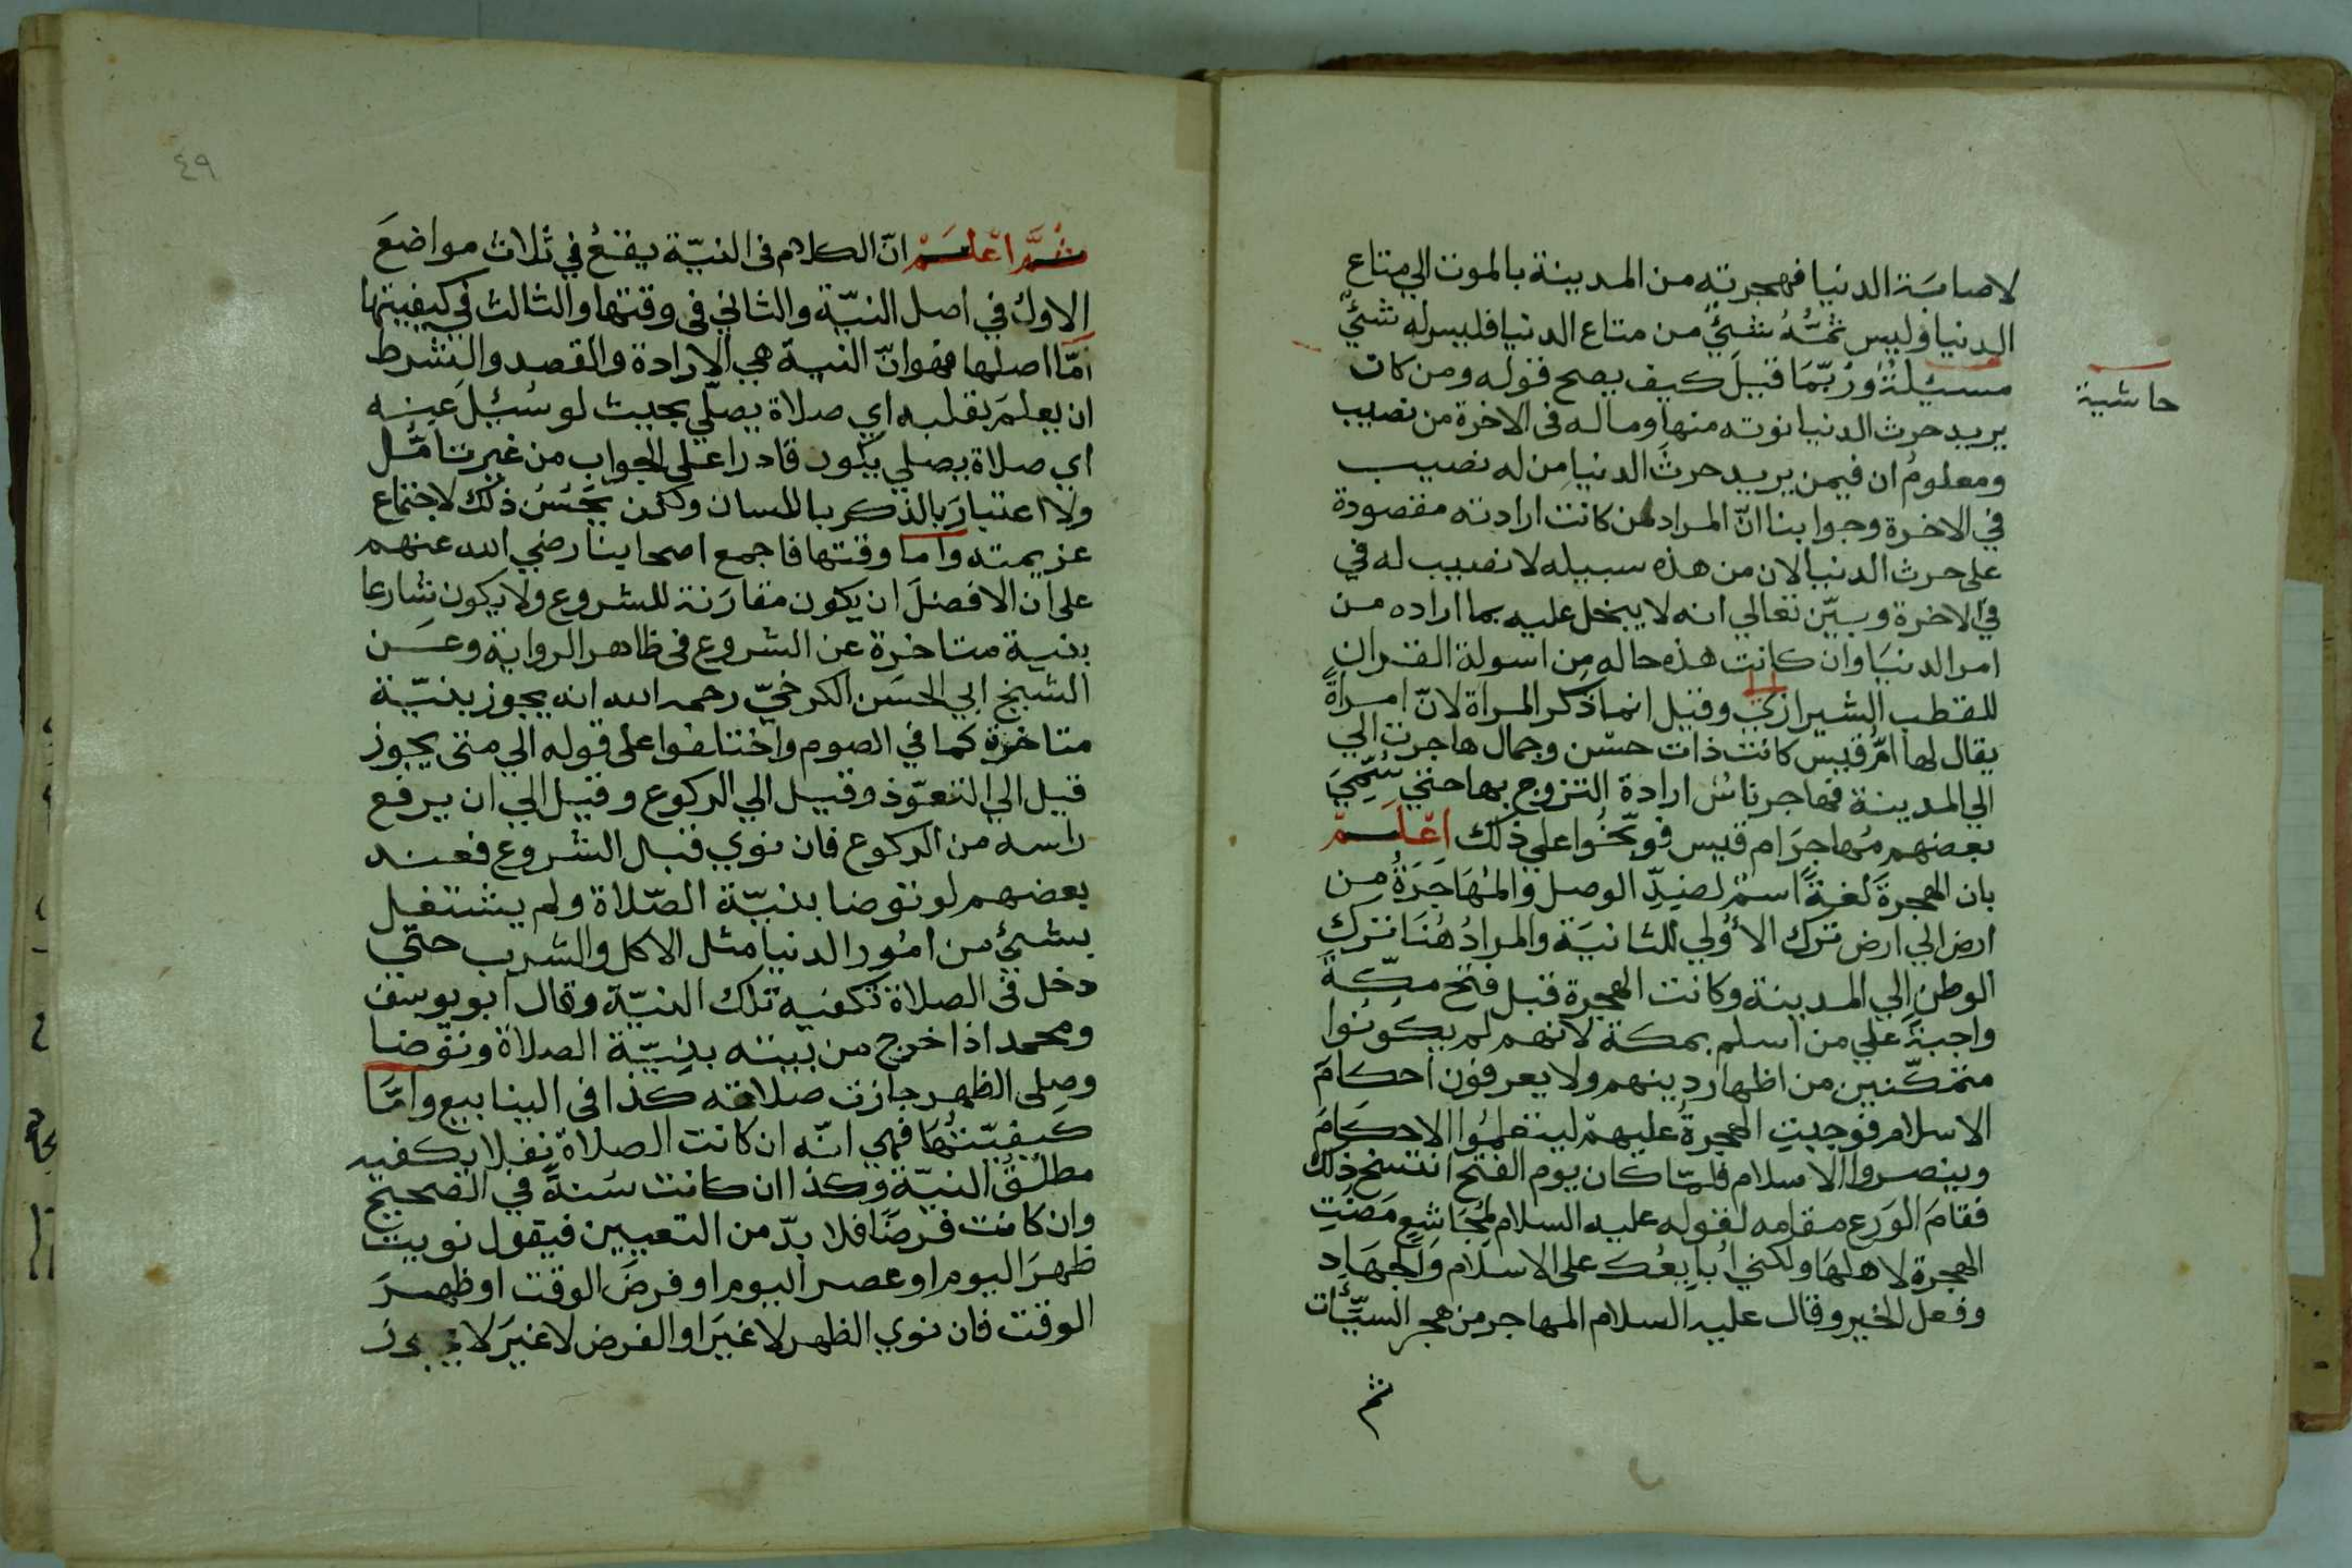 لاصابَة الدنيا فهجرته من المدينة بالموت الي متاع
الدنيا وليس ثمَّهُ شئيٌ من متاع الدنيا فليس له شئيٌ
حاشية
مسئيلةٌ وَرُبّمَا قيلَ كيف يصح قوله ومن كان
يريد حرث الدنيا نوته منها وماله فى الاخرة من نصيب
ومعلومُ ان فيمن يريد حرثَ الدنيا مِن له نصيب
في الاخرة وجوابنا انّ المراد لمن كانت ارادته مقصودة
على حرث الدنيا لان من هذه سبيله لا نصيب له في
في الاخرة وبيّن تعالي انه لا يبخل عليه بما اراده من
امر الدنيَا وان كانت هذه حاله مِن اسولة القران
للقطب الشيرازي وقيل انما ذكر المراة لانّ امراةً
يقال لها امّ قيس كانت ذات حسْن وجمال هاجرت الي
الي المدينة فهاجر ناسٌ ارادة التزوج بها حتي سُمّيَ
بعضهم مُهاجرَ ام قيس فوبّخُوا علي ذلك اعْلَمْ
بان الهجرةَ لغةً اسمٌ لضدِّ الوصل والمُهَاجَرَةُ مِن
ارض الي ارض ترك الأوُلي للثانيَة والمرادُ هُنَا ترك
الوطنِ الي المدينة وكانت الهجرة قبل فتح مكّة
واجبةً علي من اسلم بمكة لانهم لم يكوُنُوا
متمكّنيين من اظهار دينهم ولا يعرفون احكامَ
الاسلام فوجبتِ الهجرةُ عليهمْ ليتعلموُا الاحكامَ
وينصروا الاسلام فلمّا كان يوم الفتح انتسخ ذلك
فقامَ الوَرَع مقامه لقوله عليه السلام لمُجَاشِعٍ مَضَتِ
الهجرة لاهلهَا ولكني أُبايعُك على الاسلام وَالجهَادِ
وفعل الخير وقال عليه السلام المهاجر من هجر السيّئات
ثم
٤٩
ثُمَّ اعْلَمْ انّ الكلام فى النيّة يقعُ في ثلاث مواضعَ
الاولُ في اصل النيّة والثاني فى وقتها والثالث في كيفيتها
امّا اصلها فهو انّ النية هي الارادة والقصد والشرط
ان يعلمَ بقلبه اي صلاة يصلّي بحيث لو سُئِلَ عينه
اي صلاة يصلي يكون قادرا على الجواب من غير تامّل
ولا اعتبارَ بالذكر باللسان ولكن يَحْسُنُ ذلك لاجتماع
عزيمته واما وقتها فاجمع اصحابنا رضي الله عنهم
على ان الافضلَ ان يكون مقارَنة للشروع ولا يكون شارعا
بنية متاخرة عن الشروع فى ظاهر الرواية وعن
الشيخ ابي الحسَن الكرخيّ رحمه الله انه يجوز بنيّة
متاخرة كما في الصوم واختلفوا على قوله الي متى يجوز
قيل الي التعوّذ وقيل الي الركوع وقيل الي ان يرفع
راسه من الركوع فان نوي قبل الشروع فعند
بعضهم لو توضا بنيّة الصّلاة ولم يشتغل
بشئيٍ من امُور الدنيا مثل الاكل والشرب حتي
دخل فى الصلاة تكفيه تلك النيّة وقال ابو يوسف
ومحمد اذا خرج من بيته بنيّة الصلاة وتوضا
وصلى الظهر جازت صلاته كذا فى الينابيع وامّا
كيفيّتُهَا فهي انّه ان كانت الصلاة نفلا يكفيه
مطلقُ النيّة وكذا ان كانت سُنةً في الصحيح
وان كانت فرضًا فلا بدّ من التعيين فيقول نويت
ظهرَ اليوم او عصر اليوم او فرضَ الوقت او ظهرَ
الوقت فان نوي الظهر لا غيرَ او الفرض لا غيرَ لا يجوز